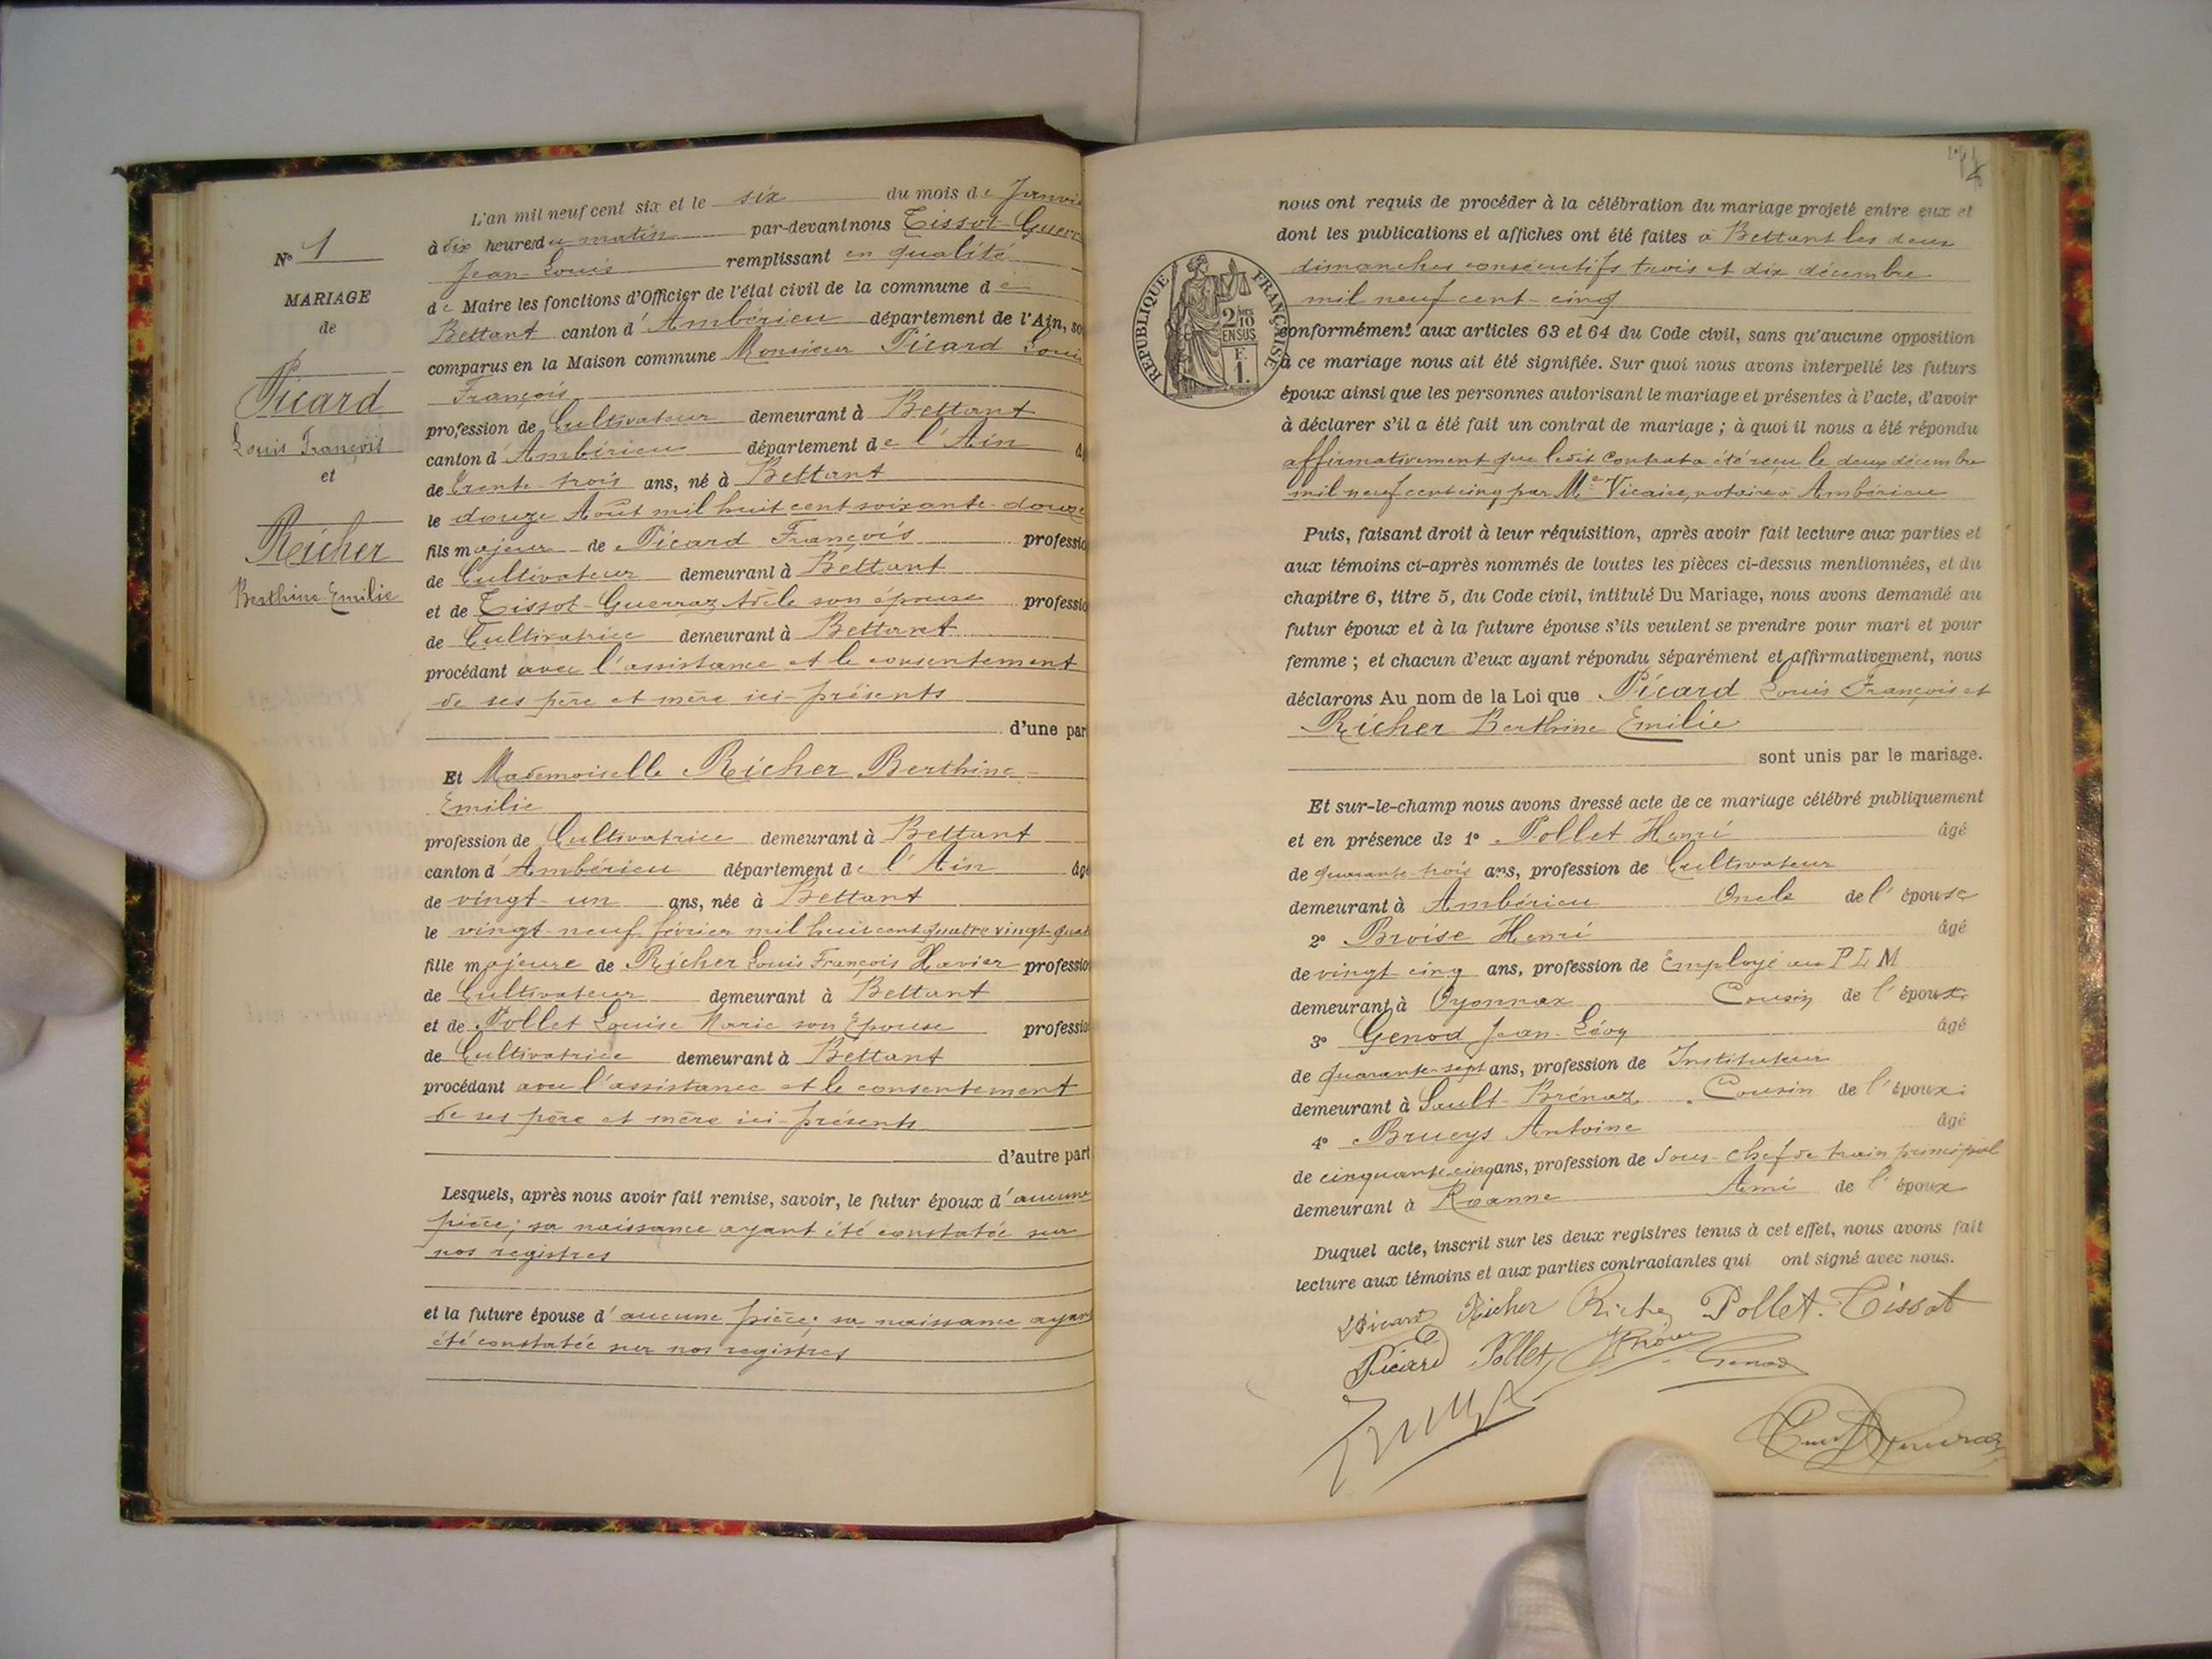 N° 1
MARIAGE
de
Picard
Louis François
et
Richer
Berthine Emilie
L'an mil neuf cent six et le six du mois de Janvie
à dix heures du matin par-devant nous Tissot-Guerr
Jean-Louis remplissant en qualité
de Maire les fonctions d'Officier de l'état civil de la commune de
Bettant canton d'Ambérieu département de l'Ain, so
comparus en la Maison commune Monsieur Picard Loui
François
profession de Cultivateur demeurant à Bettant
canton d'Ambérieu département de l'Ain â
de trente-trois ans, né à Bettant
le douze Août mil huit cent soixante-douze
fils majeur de Picard François professio
de Cultivateur demeurant à Bettant
et de Tissot-Guerraz Adèle son épouse professio
de Cultivatrice demeurant à Bettant
procédant avec l'assistance et le consentement
de ses père et mère ici-présents
d'une par
Et Mademoiselle Richer Berthine
Emilie
profession de Cultivatrice demeurant à Bettant
canton d'Ambérieu département de l'Ain âgé
de vingt-un ans, née à Bettant
le vingt-neuf février mil huit cent quatre vingt-quat
fille majeure de Richer Louis François Xavier professio
de Cultivateur demeurant à Bettant
et de Pollet Louise Marie son Epouse professio
de Cultivatrice demeurant à Bettant
procédant avec l'assistance et le consentement
de ses père et mère ici-présents
d'autre part
Lesquels, après nous avoir fait remise, savoir, le futur époux d'aucune
pièce; sa naissance ayant été constatée sur
nos registres
et la future épouse d'aucune pièce; sa naissance ayan
été constatée sur nos registres
nous ont requis de procéder à la célébration du mariage projeté entre eux et
dont les publications et affiches ont été faites à Bettant les deux
dimanches consécutifs trois et dix décembre
mil neuf cent-cinq
RÉPUBLIQUE FRANÇAISE
2/10
EN SUS
F.
1.
conformément aux articles 63 et 64 du Code civil, sans qu'aucune opposition
à ce mariage nous ait été signifiée. Sur quoi nous avons interpellé les futurs
époux ainsi que les personnes autorisant le mariage et présentes à l'acte, d'avoir
à déclarer s'il a été fait un contrat de mariage ; à quoi il nous a été répondu
affirmativement que ledit Contrat a été reçu le deux décembre
mil neuf cent cinq par Me Vicaire, notaire à Ambérieu
Puis, faisant droit à leur réquisition, après avoir fait lecture aux parties et
aux témoins ci-après nommés de toutes les pièces ci-dessus mentionnées, et du
chapitre 6, titre 5, du Code civil, intitulé Du Mariage, nous avons demandé au
futur époux et à la future épouse s'ils veulent se prendre pour mari et pour
femme ; et chacun d'eux ayant répondu séparément et affirmativement, nous
déclarons Au nom de la Loi que Picard Louis François et
Richer Berthine Emilie
sont unis par le mariage.
Et sur-le-champ nous avons dressé acte de ce mariage célébré publiquement
et en présence de 1° Pollet Henri âgé
de quarante-trois ans, profession de Cultivateur
demeurant à Ambérieu Oncle de l'épouse
2° Broise Henri âgé
de vingt-cinq ans, profession de Employé au PLM
demeurant à Oyonnax Cousin de l'époux
3° Genod Jean-Lévy âgé
de quarante-sept ans, profession de Instituteur
demeurant à Sault-Brénaz Cousin de l'époux
4° Brueys Antoine âgé
de cinquante-cinq ans, profession de Sous-chef de train principal
demeurant à Roanne Ami de l'époux
Duquel acte, inscrit sur les deux registres tenus à cet effet, nous avons fait
lecture aux témoins et aux parties contractantes qui ont signé avec nous.
Picard Richer Richer Pollet Tissot
Picard Pollet Genod